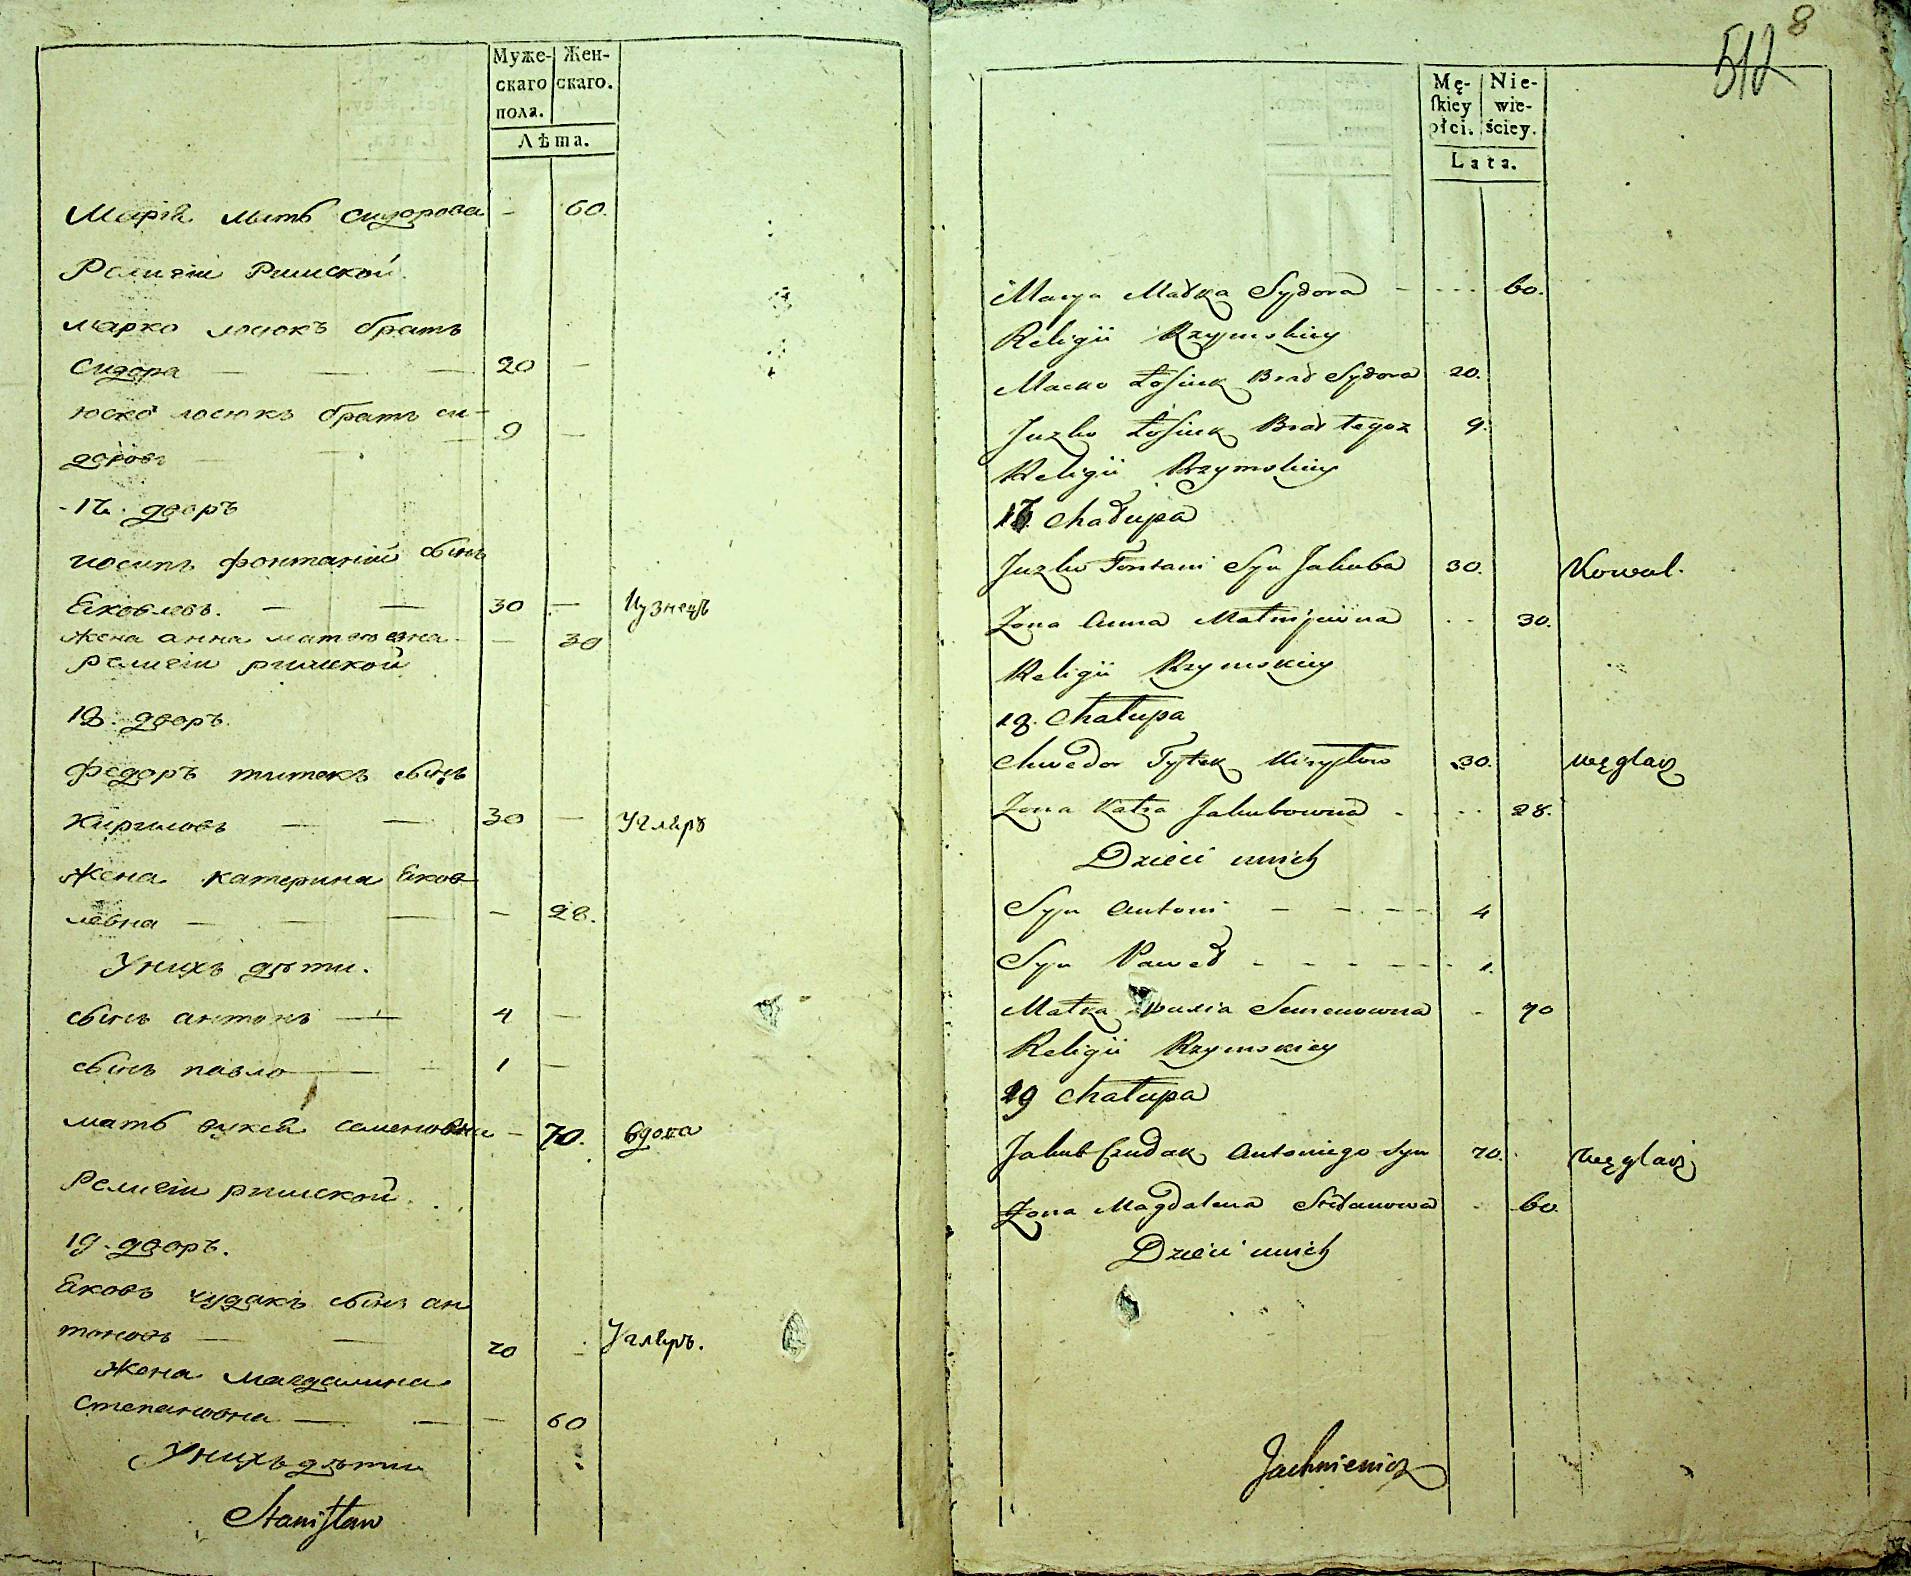 Муже- Жен-
скаго скаго.
пола.
Лѣта.
Марія мать сидорова - 60.
Религіи Римской.
марко лосюкъ братъ
Сидора — — — 20 —
юско лосюкъ братъ си-
доровъ — — 9 —
17. дворъ
иосипъ фонтаній сынъ
Яковлевъ. — — 30 — Кузнецъ
жена анна матеювна - — 30
религіи римской
18. дворъ.
федоръ титекъ сынъ
Кириловъ — — 30 — Углярь
Жена катерина Яков
левна — — — - 28.
У нихъ дѣти.
сынъ антонъ — 4 —
сынъ павло — - 1 —
мать семеновна - 70. вдова
Религіи римской.
19. дворъ.
Яковъ чудакъ сынъ ан
тоновъ — — 70 - Углярь.
Жена магдалина
Степановна — — — 60
У нихъ дѣти
Stanisław
512 8
Mę- Nie-
skiey wie-
płci. ściey.
Lata.
Marya Matka Sydora - - - - 60.
Religii Rzymskiey
Marko Łosiuk Brat Sydora 20.
Juzko Łosiuk Brat tegoż 9.
Religii Rzymskiey
17. Chałupa
Juzko Fontani Syn Jakuba 30. Kowal.
Żona Anna Matwijewna - - 30.
Religii Rzymskiey
18. Chałupa
Chwedor Tytek Kiryłow 30. węglarz
Żona Katra Jakubowna - - - - 28.
Dzieci unich
Syn Antoni - - - - 4
Syn Paweł - - - - - - 1.
Matka Semenowna - 70
Religii Rzymskiey
19 Chałupa
Jakub Czudak Antoniego syn 70. węglarz
Żona Magdalena Stefanowa - 60
Dzieci unich
Jachniewicz